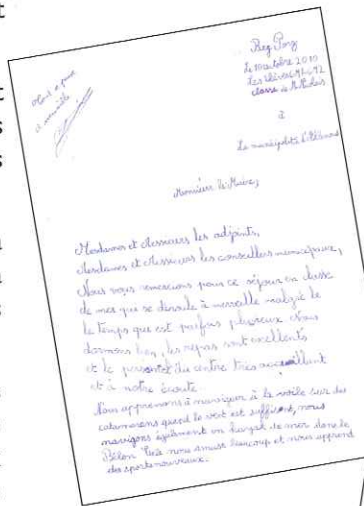 Beg Porz
Le 10 octobre 2010
Les élèves
classe de M.
à
La municipalité
Monsieur le Maire,
Mesdames et Messieurs les adjoints,
Mesdames et Messieurs les conseillers municipaux,
Nous vous remercions pour ce séjour en classe
de mer qui se déroule à merveille malgré le
le temps que est parfois pluvieux. Nous
dormons bien, les repas sont excellents
et le personnel du centre très accueillant
et à notre écoute.
Nous apprenons à naviguer à la voile sur des
catamarans quand le vent est suffisant, nous
navigons également en kayak de mer dans le
Bélon. Cela nous amuse beaucoup et nous apprend
des sports nouveaux.